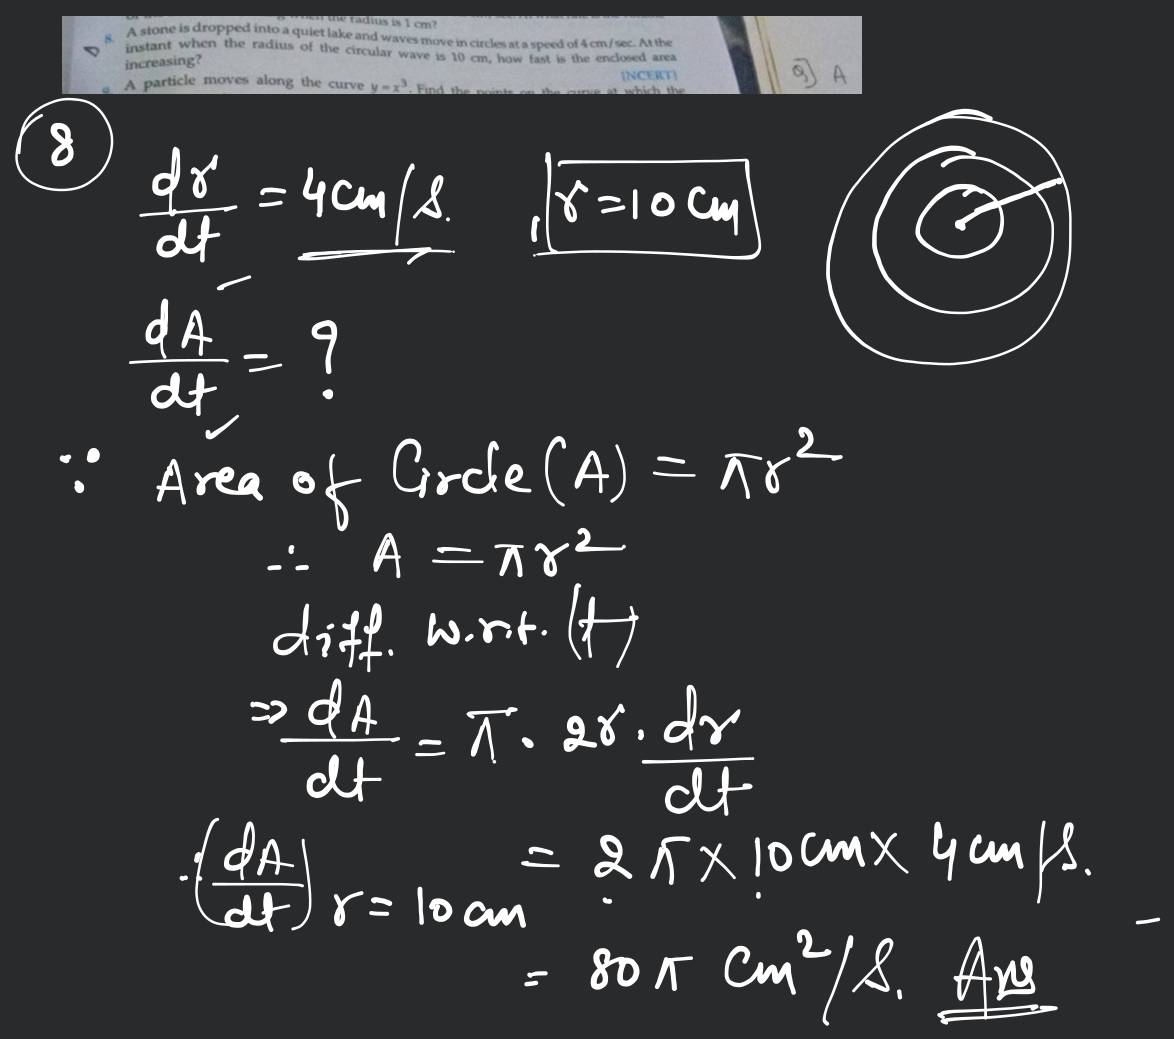 the radius is 1 cm?
8. A stone is dropped into a quiet lake and waves move in circles at a speed of 4 cm/sec. At the
instant when the radius of the circular wave is 10 cm, how fast is the enclosed area
increasing? [NCERT]
A particle moves along the curve y = x³. Find the points on the curve at which the
9) A
8
dr/dt = 4cm/s. , r=10 cm
dA/dt = ?
∵ Area of Circle (A) = πr²
∴ A = πr²
diff. w.r.t. (t)
⇒ dA/dt = π · 2r · dr/dt
∴ (dA/dt) r = 10 cm = 2π × 10 cm × 4 cm/s.
= 80π cm²/s. Ans